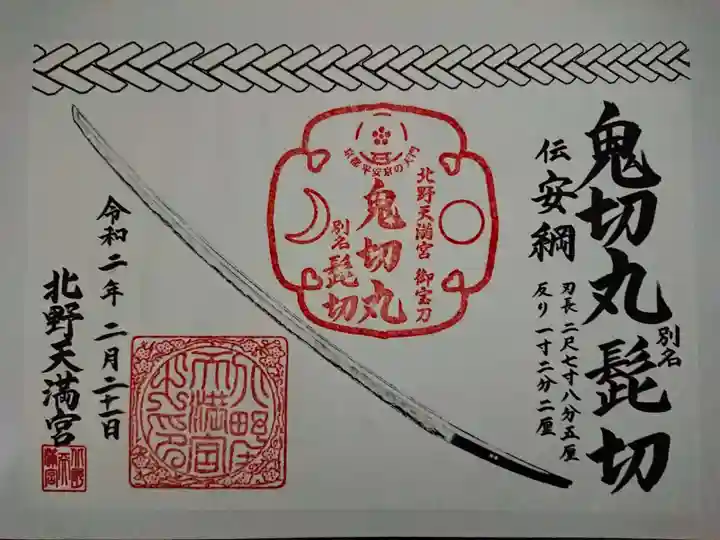 鬼切丸 別名 髭切
伝 安綱
刃長 二尺七寸八分五厘
反り 一寸二分二厘
京都平安京の天門
北野天満宮 御宝刀
鬼切丸
別名 髭切
令和二年 二月二十一日
北野天満宮